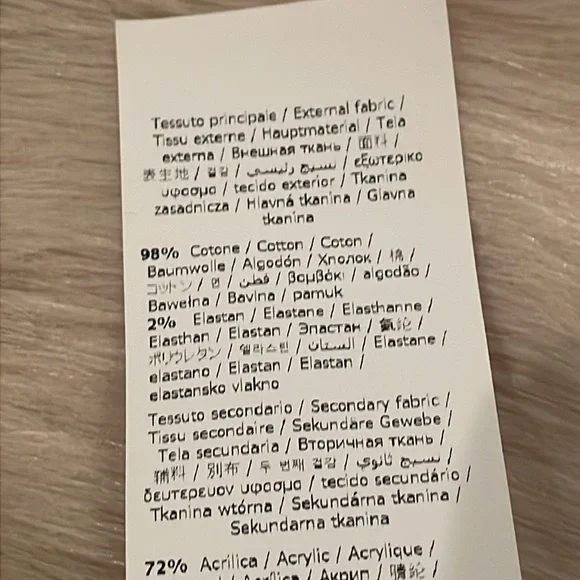 Tessuto principale / External fabric /
Tissu externe / Hauptmaterial / Tela
externa / Внешная ткань / 面料 /
表生地 / 겉감 / نسيج رئيسي / εξωτερικο
υφασμα / tecido exterior / Tkanina
zasadnicza / Hlavná tkanina / Glavna
tkanina
98% Cotone / Cotton / Coton /
Baumwolle / Algodón / Хлопок / 棉 /
コットン / 면 / قطن / βαμβάκι / algodão /
Bawełna / Bavlna / pamuk
2% Elastan / Elastane / Elasthanne /
Elasthan / Elastan / Эластан / 氨纶 /
ポリウレタン / 엘라스틴 / الستان / Elastane /
elastano / Elastan / Elastan /
elastansko vlakno
Tessuto secondario / Secondary fabric /
Tissu secondaire / Sekundäre Gewebe /
Tela secundaria / Вторичная ткань /
辅料 / 別布 / 두 번째 겉감 / نسيج ثانوي /
δευτερευον υφασμα / tecido secundário /
Tkanina wtórna / Sekundárna tkanina /
Sekundarna tkanina
72% Acrílica / Acrylic / Acrylique /
/ Акрил / 腈纶 /